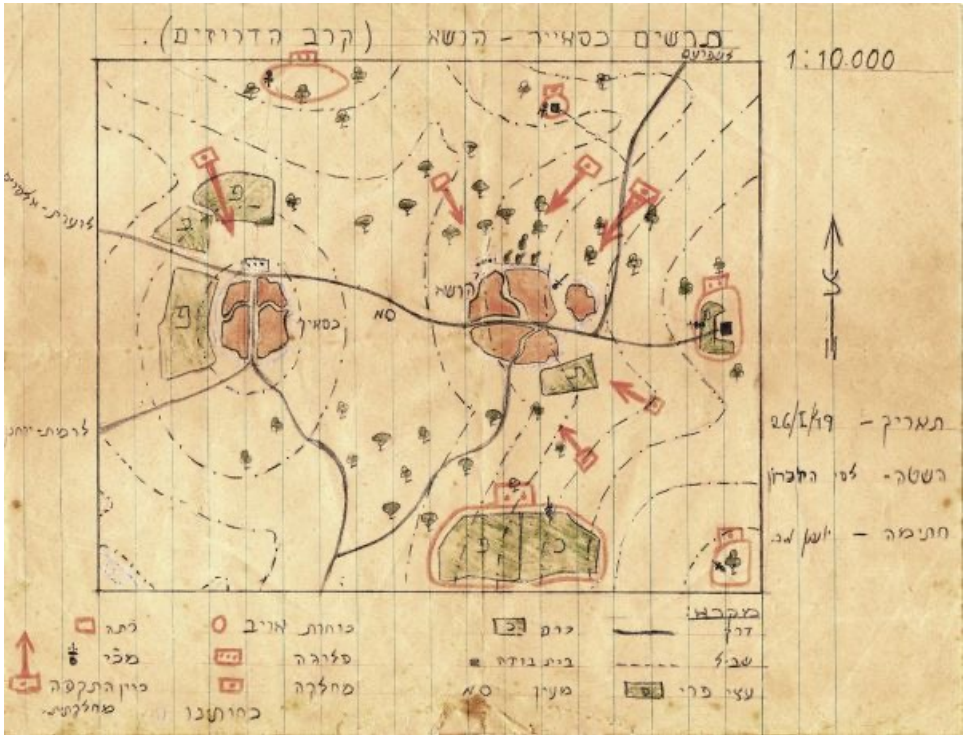 תרשים כסאייר - הושא (קרב הדרוזים).
1:10.000
לשפרעם
פ
פ
פ
הושא
כסאייר
מ0
פ
כ
תאריך - 26/I/49
השטה - לפי הזכרון
חתימה -
מקרא:
דרך
שביל
עצי פרי
כרם כ
בית בודד
מעין מ0
כוחות אויב
פלוגה
מחלקה
כוחותנו
כתה
מכי
כוון התקפה מחלקתית.